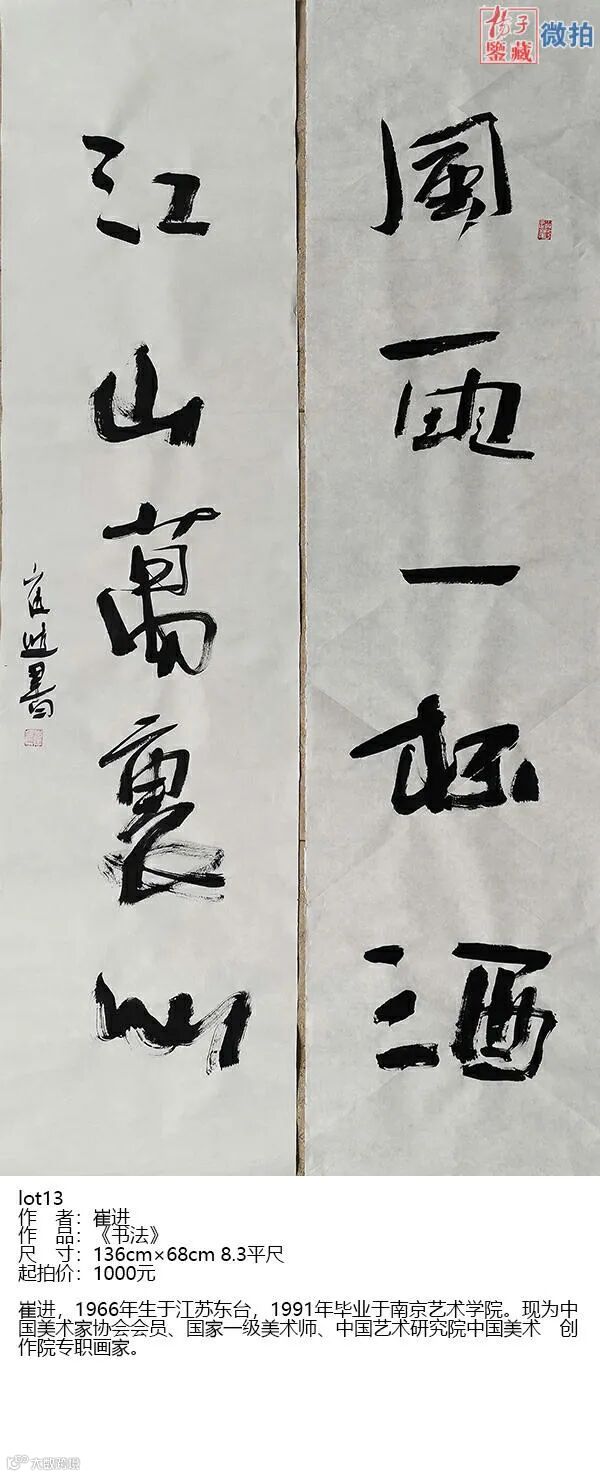 杨子
鉴藏
微拍
風雨一杯酒
江山萬裏心
崔进書
lot13
作 者：崔进
作 品：《书法》
尺 寸：136cm×68cm 8.3平尺
起拍价：1000元
崔进，1966年生于江苏东台，1991年毕业于南京艺术学院。现为中
国美术家协会会员、国家一级美术师、中国艺术研究院中国美术 创
作院专职画家。